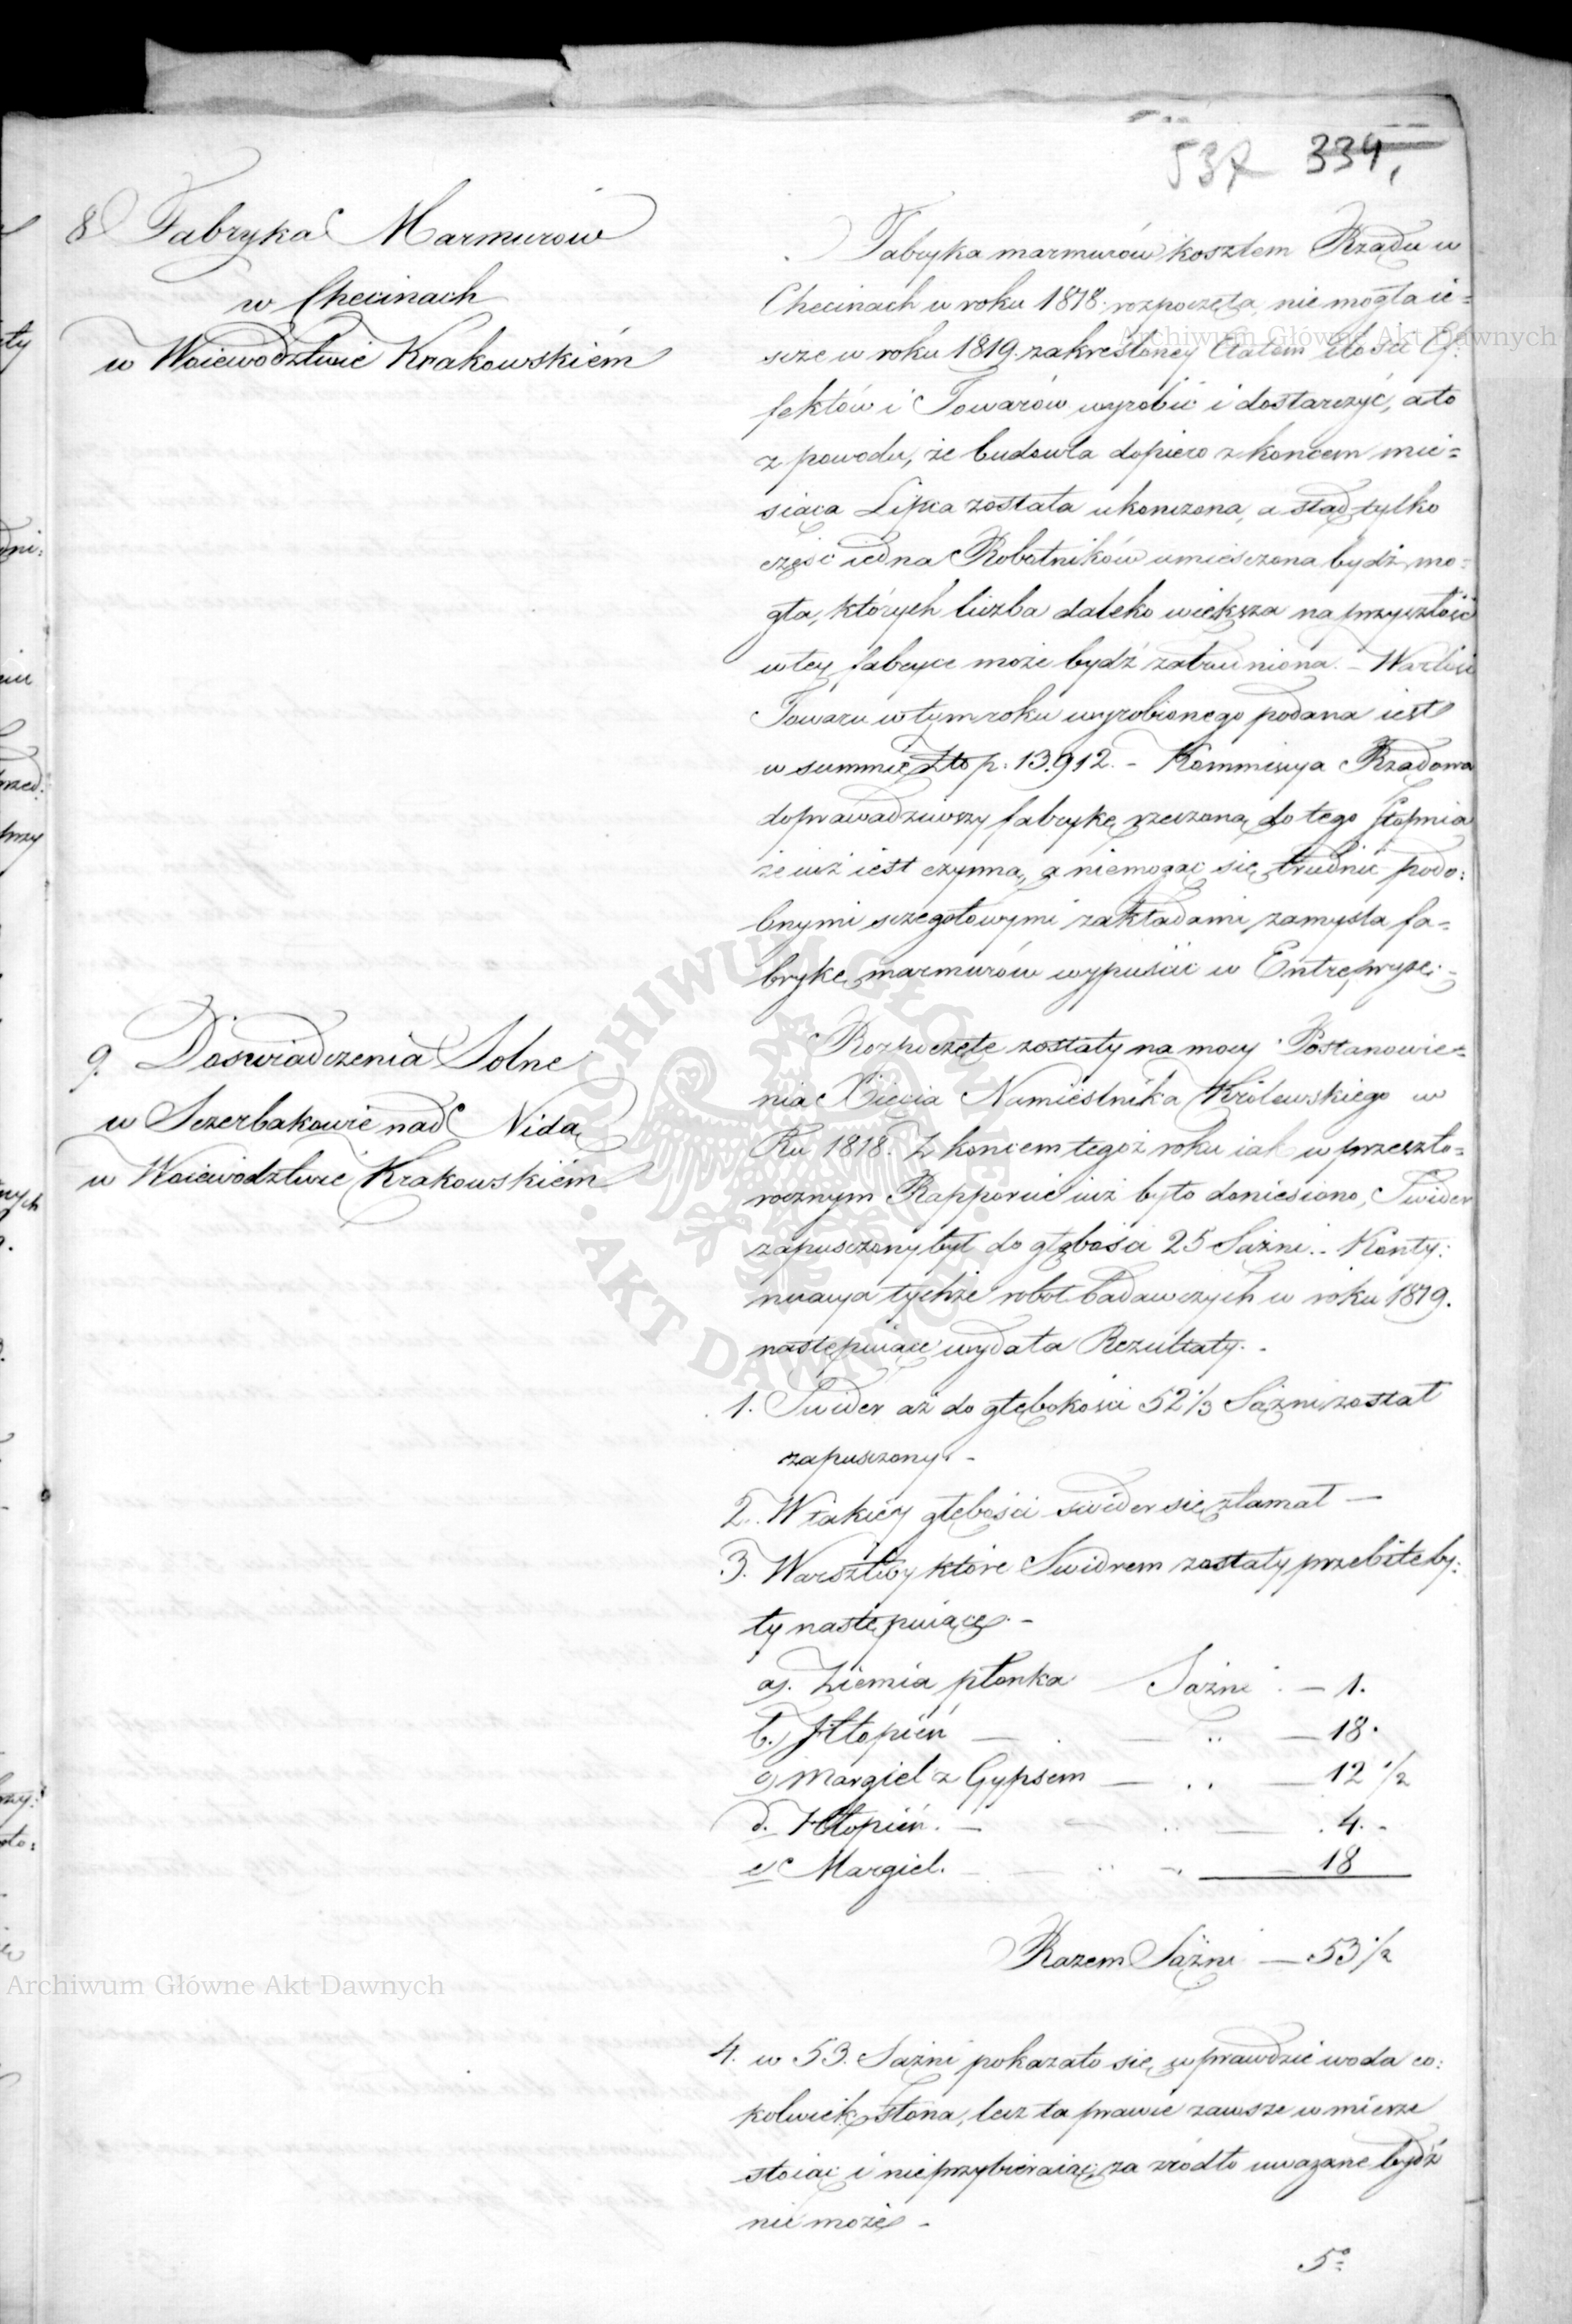 537 334,
8 Fabryka Marmurów
w Checinach
w Woiewodztwie Krakowskiém
Fabryka marmurów kosztem Rządu w
Checinach w roku 1818. rozpoczęta, nie mogła ie=
szcze w roku 1819. zakreśloney Etatem ilości Ef:
fektów i Towarów wyrobić i dostarczyć, a to
z powodu, że budowla dopiero z koncem mie=
siąca Lipca została ukonczona, a stąd tylko
część iedna Robotników umiesczona bydź mo=
gła, których liczba daleko większa na przyszłość
w tey fabryce może bydź zatrudniona. – Wartość
Towaru w tym roku wyrobionego podana iest
w summie Złop. 13.912. – Kommissya Rządowa
doprowadziwszy fabrykę rzeczoną do tego stopnia
że iuż iest czynna, a niemogąc się trudnić podo:
bnymi sczegołowymi zakładami, zamyśla fa=
brykę marmurów wypuścić w Entrepryzę. –
9. Doswiadczenia Solne
w Sczerbakowie nad Nidą
w Woiewodztwie Krakowskiém
Rozpoczęte zostały na mocy Postanowie=
nia Xięcia Namiestnika Królewskiego w
Ru 1818. Z koncem tegoż roku iak w przeszło=
rocznym Rapporcie iuż było doniesiono, Swider
zapusczony był do głębości 25 Sążni. – Konty:
nuacya tychże robot badawczych w roku 1819.
następuiące wydała Rezultaty. –
1. Swider aż do głębokości 52 1/3 Sążni został
zapusczony. –
2. W takiey głębości swider się złamał —
3. Warsztwy które Swidrem zostały przebite by:
ły następuiące. –
a). Ziemia płonka — Sążni . — 1.
b.) Iłłopień — . — .. — 18.
c) Margiel z Gypsem — .. — 12 1/2
d. Iłłopień. — — .. — . 4. –
e) Margiel. — — .. — 18
Razem Sążni — 53 1/2
4. w 53. Sążni pokazało się wprawdzie woda co:
kolwiek słona, lecz ta prawie zawsze w mierze
stoiąc i nieprzybieraiąc, za zrodło uważane bydź
nie może –
5°
Archiwum Główne Akt Dawnych
Archiwum Główne Akt Dawnych
ARCHIWUM GŁÓWNE · AKT DAWNYCH ·